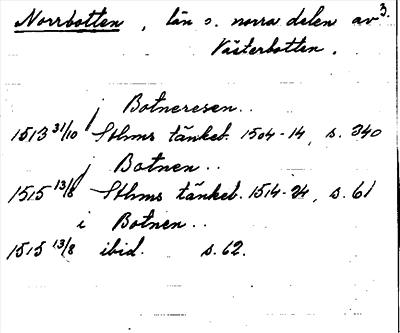 Norrbotten, län o. norra delen av 3.
Västerbotten.
i Botneresen..
1513 31/10 Sthms tänkeb. 1504-14, s. 340
i Botnen..
1515 13/8 Sthms tänkeb. 1514-24, s. 61
i Botnen..
1515 13/8 ibid. s. 62.